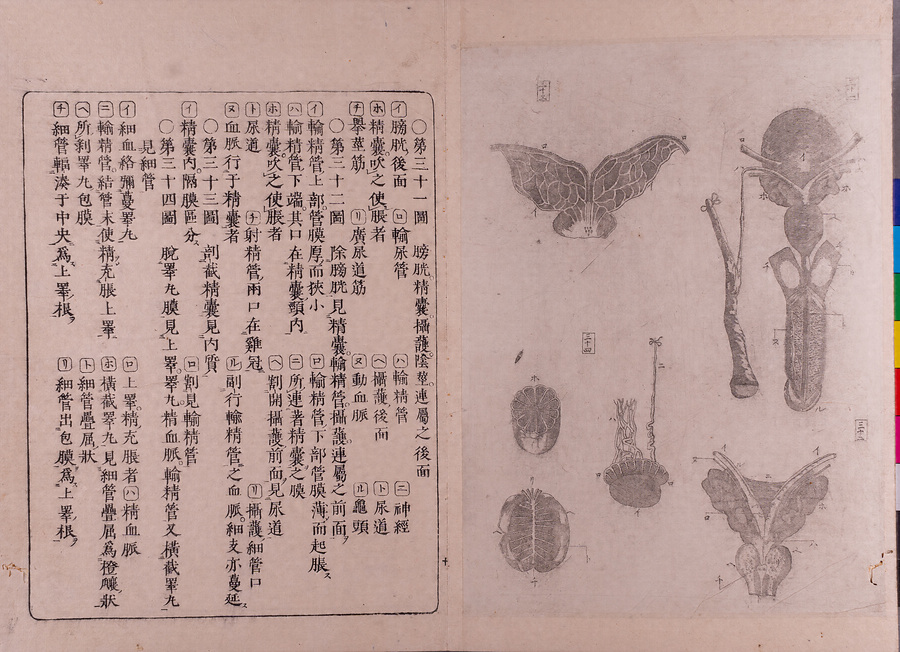 〇第三十一圖　膀胱精囊攝護陰莖連屬之後面
イ膀胱後面　ロ輸尿管　ハ輸精管　ニ神經
ホ精囊吹之使脹者　ヘ攝護後面　ト尿道
チ擧莖筋　リ廣尿道筋　ヌ動血脈　ル龜頭
〇第三十二圖　除膀胱見精囊輸精管攝護連屬之前面
イ輸精管上部管膜厚而狹小　ロ輸精管下部管膜薄而起脹
ハ輸精管下端其口在精囊頸内　ニ所連著精囊之膜
ホ精囊吹之使脹者　ヘ割開攝護前面見尿道
ト尿道　チ射精管兩口在雞冠　リ攝護細管口
ヌ血脈行于精囊者　ル副行輸精管之血脈細支亦蔓延
〇第三十三圖　剖截精囊見内質
イ精囊内隔膜區分　ロ割見輸精管
〇第三十四圖　脫睪丸膜見上睪睪丸精血脈輸精管又橫截睪丸
見細管
イ細血絡彌蔓睪丸　ロ上睪精充脹者　ハ精血脈
ニ輸精管結管末使精充脹上睪　ホ橫截睪丸見細管疊屈爲橙瓤狀
ヘ所剝睪丸包膜　ト細管疊屈狀
チ細管輻湊于中央爲上睪根　リ細管出包膜爲上睪根
三十一
三十二
三十三
三十四